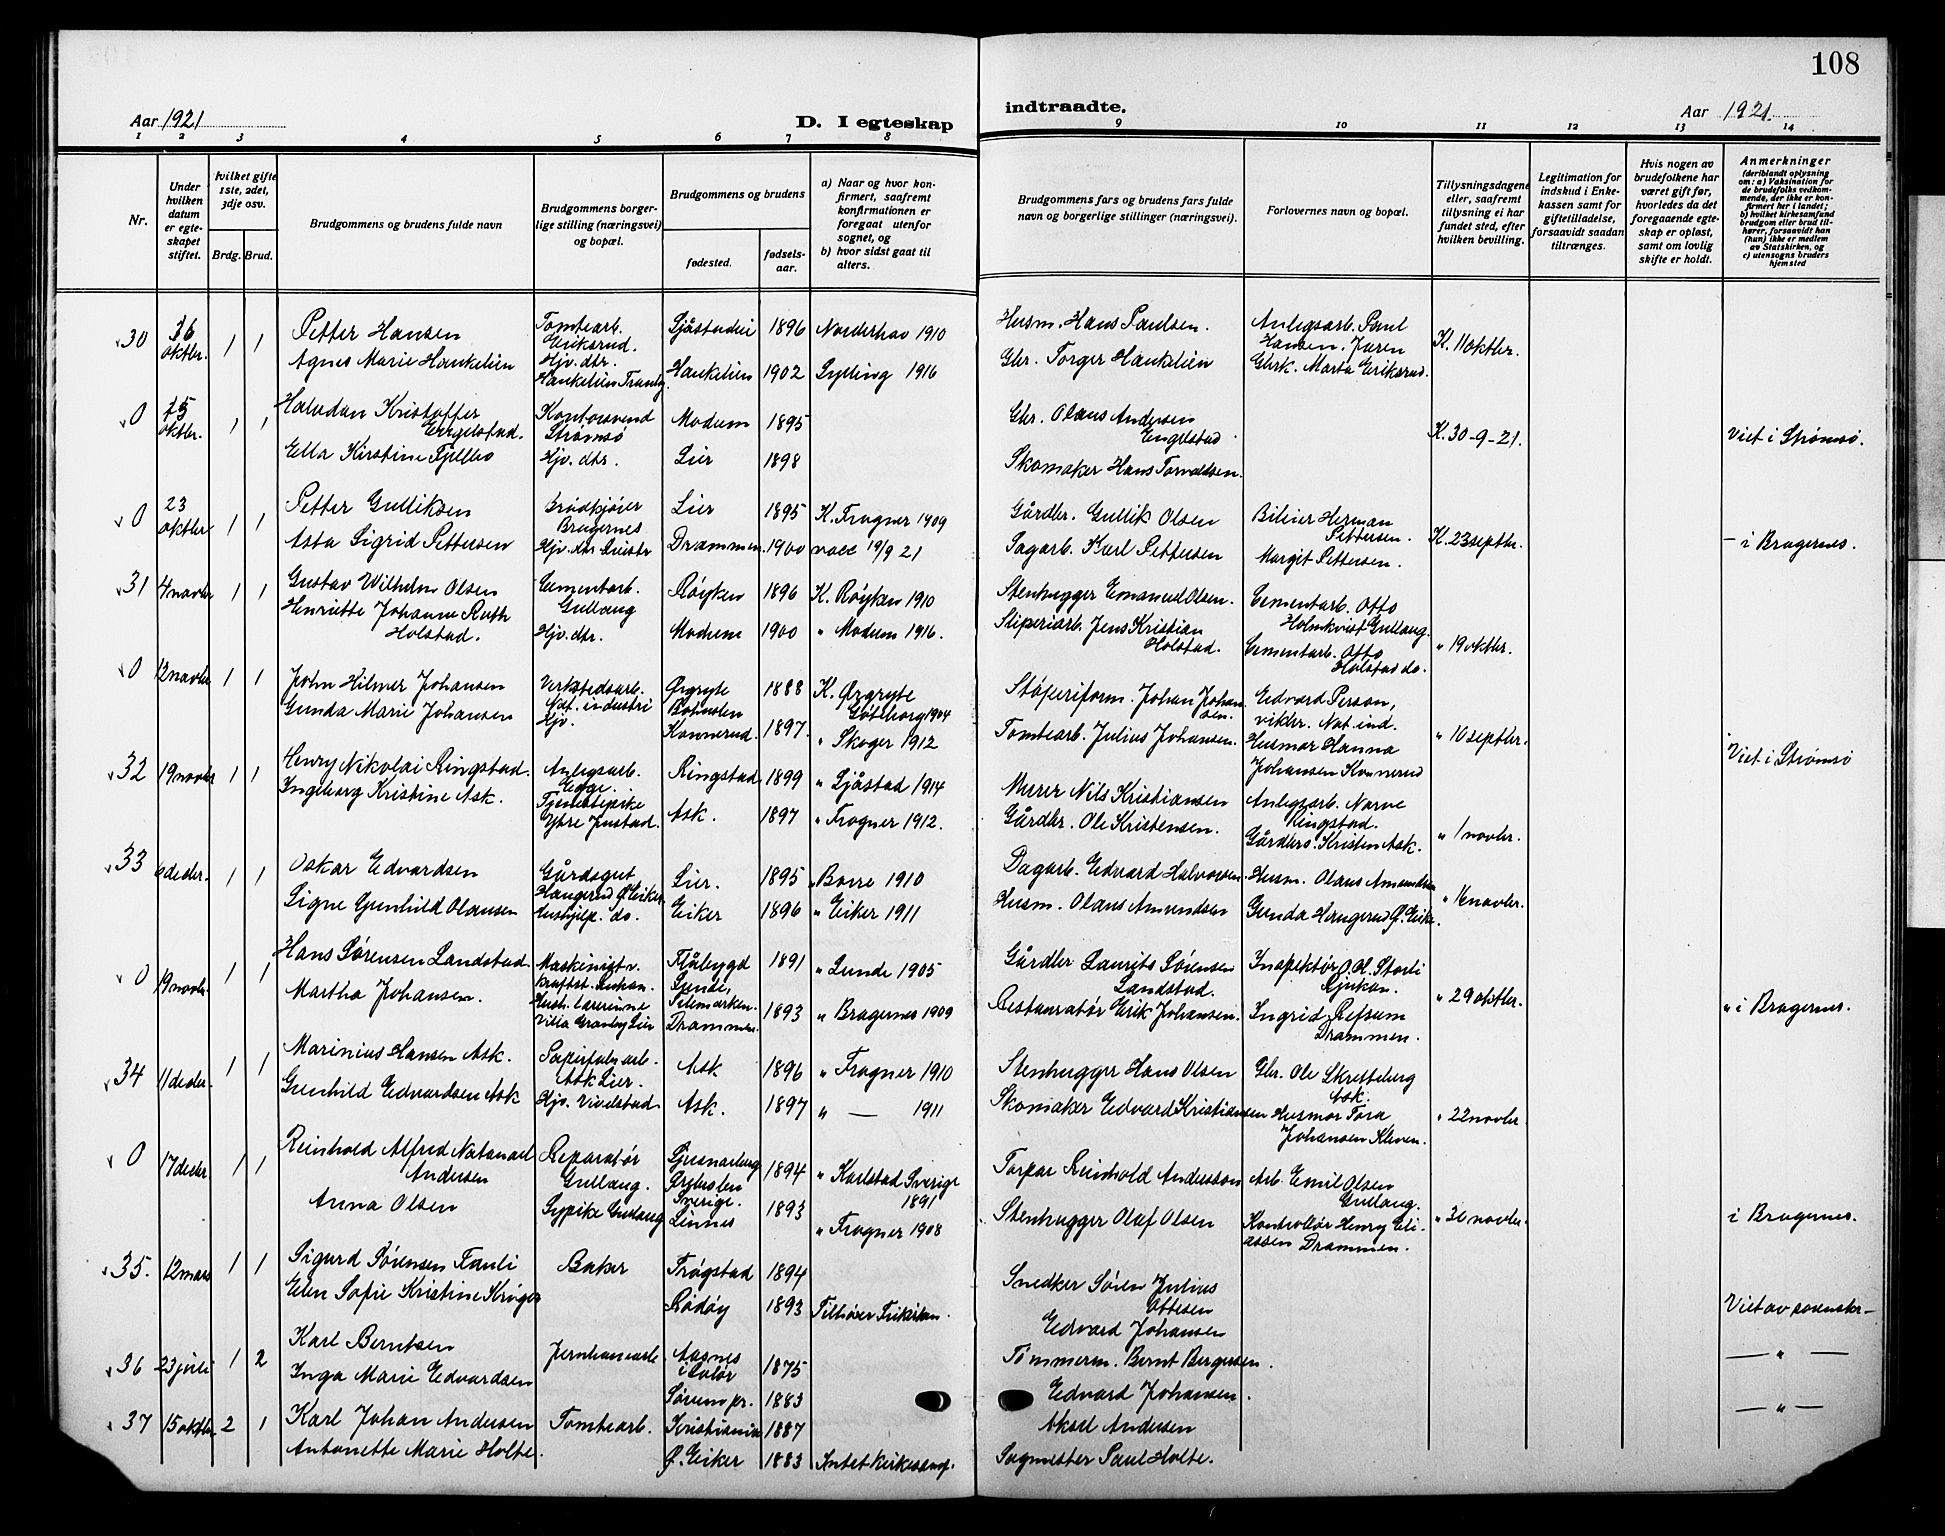 108
Aar 1921 D. I egteskap indtraadte. Aar 1921.
1 2 3 4 5 6 7 8 9 10 11 12 13 14
Nr.
Under hvilken datum er egteskapet stiftet.
hvilket gifte 1ste, 2det, 3dje osv.
Brdg. Brud.
Brudgommens og brudens fulde navn
Brudgommens borgerlige stilling (næringsvei) og bopæl.
Brudgommens og brudens
fødested.
fødselsaar.
a) Naar og hvor konfirmert, saafremt konfirmationen er foregaat utenfor sognet, og
b) hvor sidst gaat til alters.
Brudgommens fars og brudens fars fulde navn og borgerlige stillinger (næringsvei).
Forlovernes navn og bopæl.
Tillysningsdagene eller, saafremt tillysning ei har fundet sted, efter hvilken bevilling.
Legitimation for indskud i Enkekassen samt for giftetilladelse, forsaavidt saadan tiltrænges.
Hvis nogen av brudefolkene har været gift før, hvorledes da det foregaaende egteskap er opløst, samt om lovlig skifte er holdt.
Anmerkninger (deriblandt oplysning om: a) Vaksination for de brudefolks vedkommende, der ikke er konfirmert her i landet; b) hvilket kirkesamfund brudgom eller brud tilhører, forsaavidt han (hun) ikke er medlem av Statskirken, og c) utensogns bruders hjemsted
30 oktbr. 1 1 Petter Hansen Tomtearb. Eriksrud. Sjåstadeie 1896 Norderhov 1910 Husm. Hans Paulsen. Anlegsarb. Paul Hansen. K. 11 oktbr.
Agnes Marie Haukelien Hjv. dtr. Haukelien Tranby. Haukelien 1902 Sylling 1916 Gbr. Torger Haukelien Marta Eriksrud.
0 oktbr. 1 1 Halvdan Kristoffer Engelstad. Strømsø Modum 1895 Gbr. Olaus Andersen Engelstad K. 30-9-21. Viet i Strømsø.
Ella Kirstine Fjellbo Hjv. dtr. Lier 1898 Skomaker Hans Torvaldsen.
0 23 oktbr 1 1 Petter Gulliksen Brødkjører Bragernes Lier 1895 K. Frogner 1909 Gårdbr. Gullik Olsen Herman Pettersen. K. 23 septbr. — i Bragernes.
Asta Sigrid Pettersen Hjv. dtr. Drammen. 1900 19/9 21 Sagarb. Karl Pettersen Margit Pettersen.
31 4 novbr 1 1 Gustav Wilhelm Olsen Cementarb. Gullaug Røyken 1896 K. Røyken 1910 Stenhugger Emanuel Olsen. Cementarb. Otto Holmkvist Gullaug. " 19 oktbr.
Henriette Johanne Ruth Holstad. Hjv. dtr. Modum 1900 " Modum 1916. Sliperiarb. Jens Kristian Holstad. Cementarb. Otto Holstad do.
0 12 novbr 1 1 John Hilmer Johansen Verkstedsarb. Nat. industri Ørgryte 1888 K. Ørgryte Göteborg 1904 Støperiform. Johan Johansen. Edvard Person, Nat. ind. " 10 septbr. Viet i Strømsø
Gunda Marie Johansen Hjv. Konnerud. 1897. " Skoger 1912 Tomtearb. Julius Johansen. Husmor Hanna Johansen Konnerud
32 19 novbr 1 1 Henry Nikolai Ringstad. Anlegsarb. Egge. Ringstad 1899 " Sjåstad 1914 Murer Nils Kristiansen Anlegsarb. Narve Ringstad. " 1 novbr.
Ingeborg Kristine Ask. Tjenestepike Ytre Justad. Ask. 1897 " Frogner 1912. Gårdbr. Ole Kristensen. Gårdbr. Kristen Ask.
33 6 decbr. 1 1 Oskar Edvardsen Gårdsgut Haugerud Ø Eiker Lier. 1895 " Borre 1910 Dagarb. Edvard Halvorsen Husm. Olaus Amundsen " 16 novbr.
Signe Gunhild Olausen Hushjelp. do. Eiker 1896 " Eiker 1911 Husm. Olaus Amundsen Gunda Haugerud Ø. Eiker.
0 19 novbr. 1 1 Hans Sørensen Landstad Maskinist v. Flåbygd Lunde, Telemarken. 1891 " Lunde 1905 Gårdbr Laurits Sørensen Landstad. Inspektør O. H. Storli Rjukan. " 29 oktbr. " i Bragernes.
Martha Johansen. Hush. lærerinne Villa Granly Lier Drammen. 1893 " Bragernes 1909 Restauratør Erik Johansen. Ingrid Refsum Drammen.
34 11 decbr. 1 1 Marinius Hansen Ask. Papirfabr. arb. Ask Lier. Ask 1896 " Frogner 1910 Stenhugger Hans Olsen Gbr. Ole Skretteberg Ask. " 22 novbr.
Gunhild Edvardsen Ask Hjv. Vivelstad Ask. 1897 " — 1911 Skomaker Edvard Kristiansen Husmor Tora Johansen Kleven.
0 17 decbr 1 1 Reinhold Alfred Natanael Andersen Reparatør Gullaug. Ljusnarsberg Sverige. 1894 " Karlstad Sverige 1891 Torpar Reinhold Andersson Arb. Emil Olsen Gullaug. " 30 novbr. i Bragernes.
Anna Olsen Sypike Gullaug Linnes 1893 " Frogner 1908 Stenhugger Olaf Olsen Kontrollør Henry Eliassen Drammen.
35. 12 mars 1 1 Sigurd Sørensen Fauli Baker Trøgstad 1894 Snedker Søren Julius Ottesen Viet av sorensker—
Elen Sofie Kristine Krüger Rødøy 1893 Tilhører Frikirken. Edvard Johansen
36 23 juli 1 2 Karl Berntsen Jernbanearb Aasnes i Solør 1875 Tømmerm. Bernt Bergersen. — " —
Inga Marie Edvardsen Sørum pr. 1883 Edvard Johansen.
37 15 oktbr. 2 1 Karl Johan Andersen Tomtearb. Kristiania 1887 Aksel Andersen — " —
Antonette Marie Holte. Ø. Eiker 1883 Intet kirkesamf. Sagmester Paul Holte.